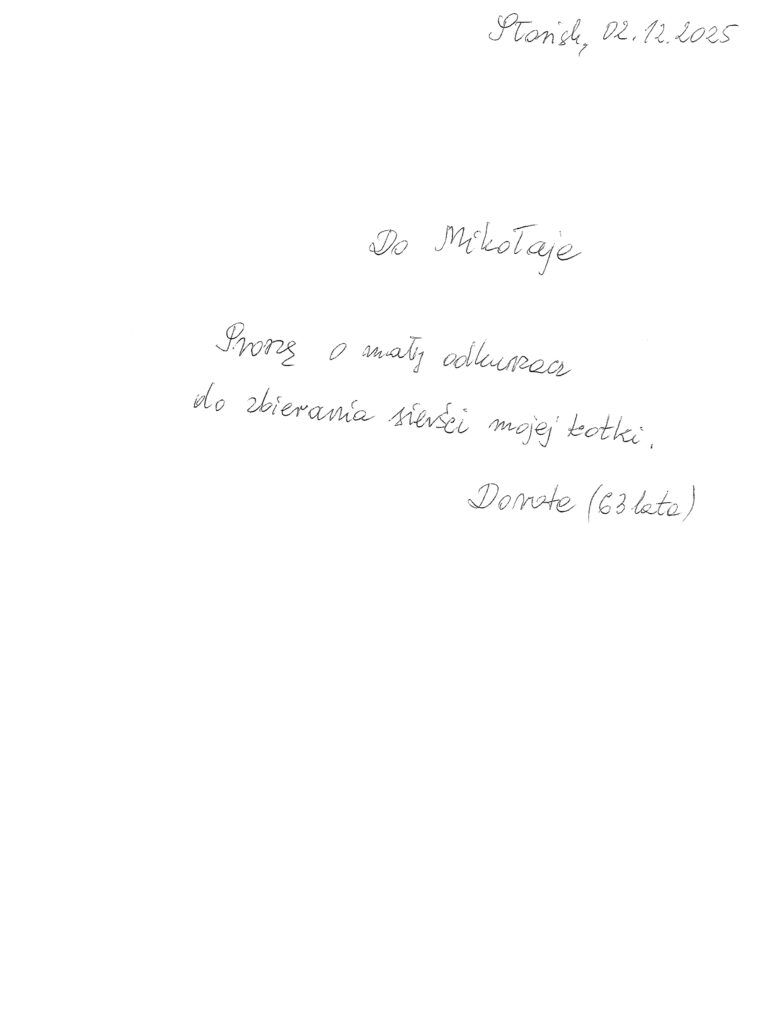 Słońsk, 02.12.2025
Do Mikołaja
Proszę o mały odkurzacz
do zbierania sierści mojej kotki.
Dorota (63 lata)